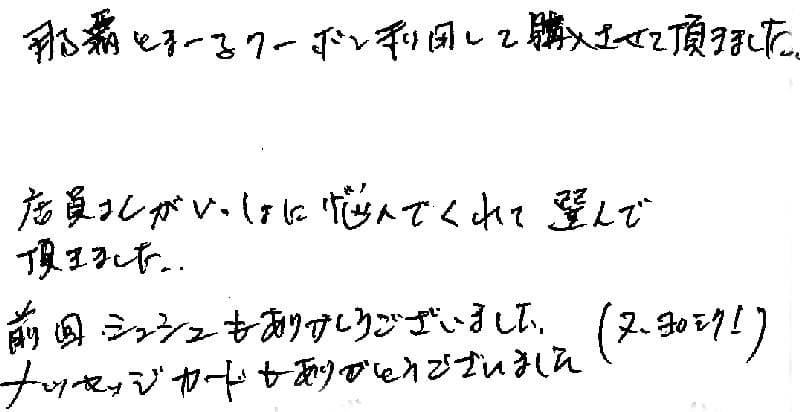 那覇とまーるクーポン利用して購入させて頂きました。
店員さんがいっしょに悩んでくれて選んで
頂きました。
前回シュシュもありがとうございました。
メッセージカードもありがとうございました